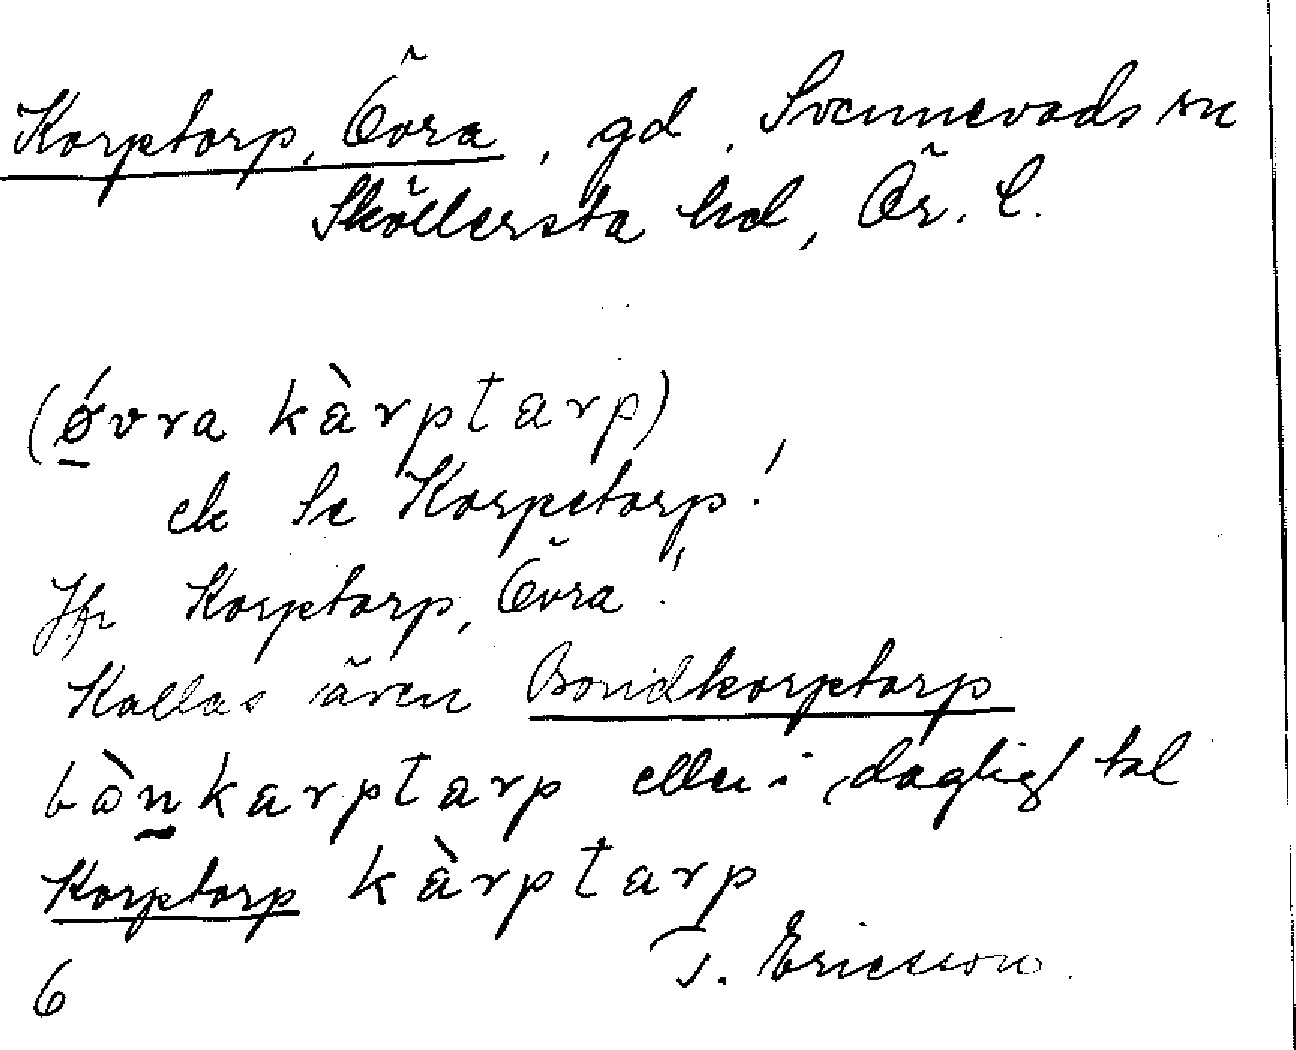 Korptorp, Övra, gd, Svennevads sn
Sköllersta hd, Ör. L.
(ǿvra kàrptarp)
ek Se Korpetorp!
Jfr Korptorp, Övra!
Kallas även Bondkorptorp
bònkarptarp eller i dagligt tal
Korptorp kàrptarp
T. Ericsson
6